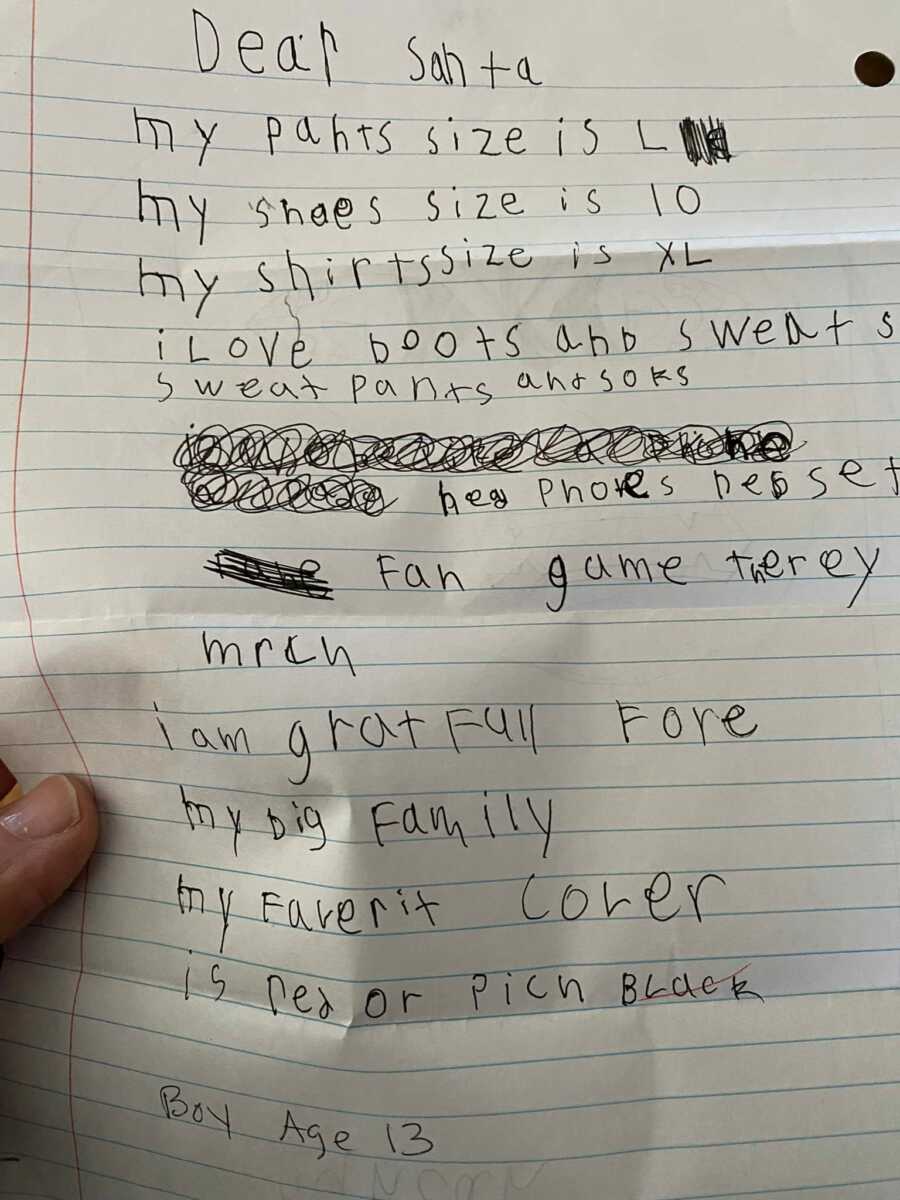 Dear Santa
my pants size is L
my shoes size is 10
my shirts size is XL
i Love boots and sweats
sweat pants and soks
hed Phones hedset
Fan game therey
mrch
i am grat Full Fore
my big Family
my Faverit Coler
is red or Pich BLack
Boy Age 13